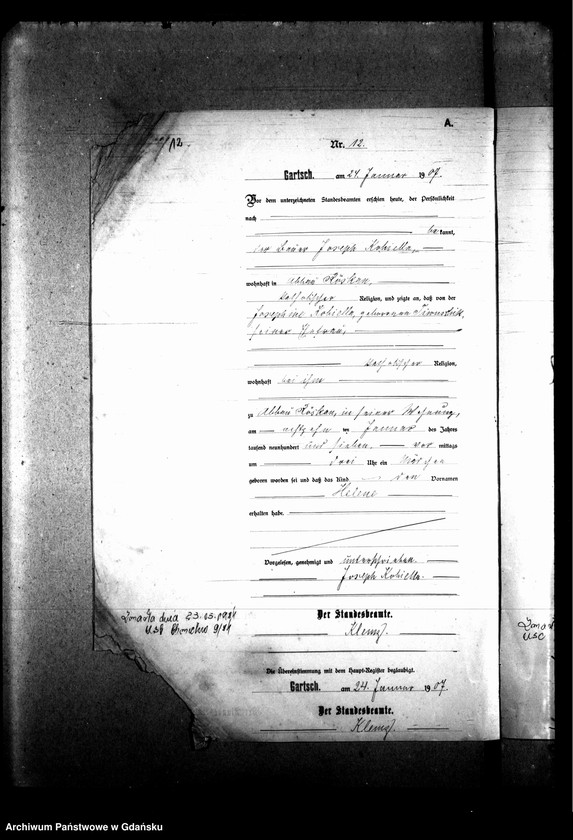 A.
12.
Nr. 12.
Gartsch. am 24. Januar 1907.
Vor dem unterzeichneten Standesbeamten erschien heute, der Persönlichkeit
nach
bekannt,
der Bauer Joseph Kobiella,
wohnhaft in Abbau Röskau,
katholischer Religion, und zeigte an, daß von der
Josephine Kobiella, geborenen
seiner Ehefrau,
katholischer Religion,
wohnhaft bei ihm
zu Abbau Röskau, in seiner Wohnung,
am achtzehn ten Januar des Jahres
tausend neunhundert und sieben vor mittags
um drei Uhr ein Mädchen
geboren worden sei und daß das Kind den Vornamen
Helene
erhalten habe.
Vorgelesen, genehmigt und unterschrieben.
Joseph Kobiella.
Der Standesbeamte.
Klemp.
Zmarła dnia 23.05.1984
USC 9/84
Die Übereinstimmung mit dem Haupt-Register beglaubigt.
Gartsch. am 24. Januar 1907.
Der Standesbeamte.
Klemp.
USC
Archiwum Państwowe w Gdańsku